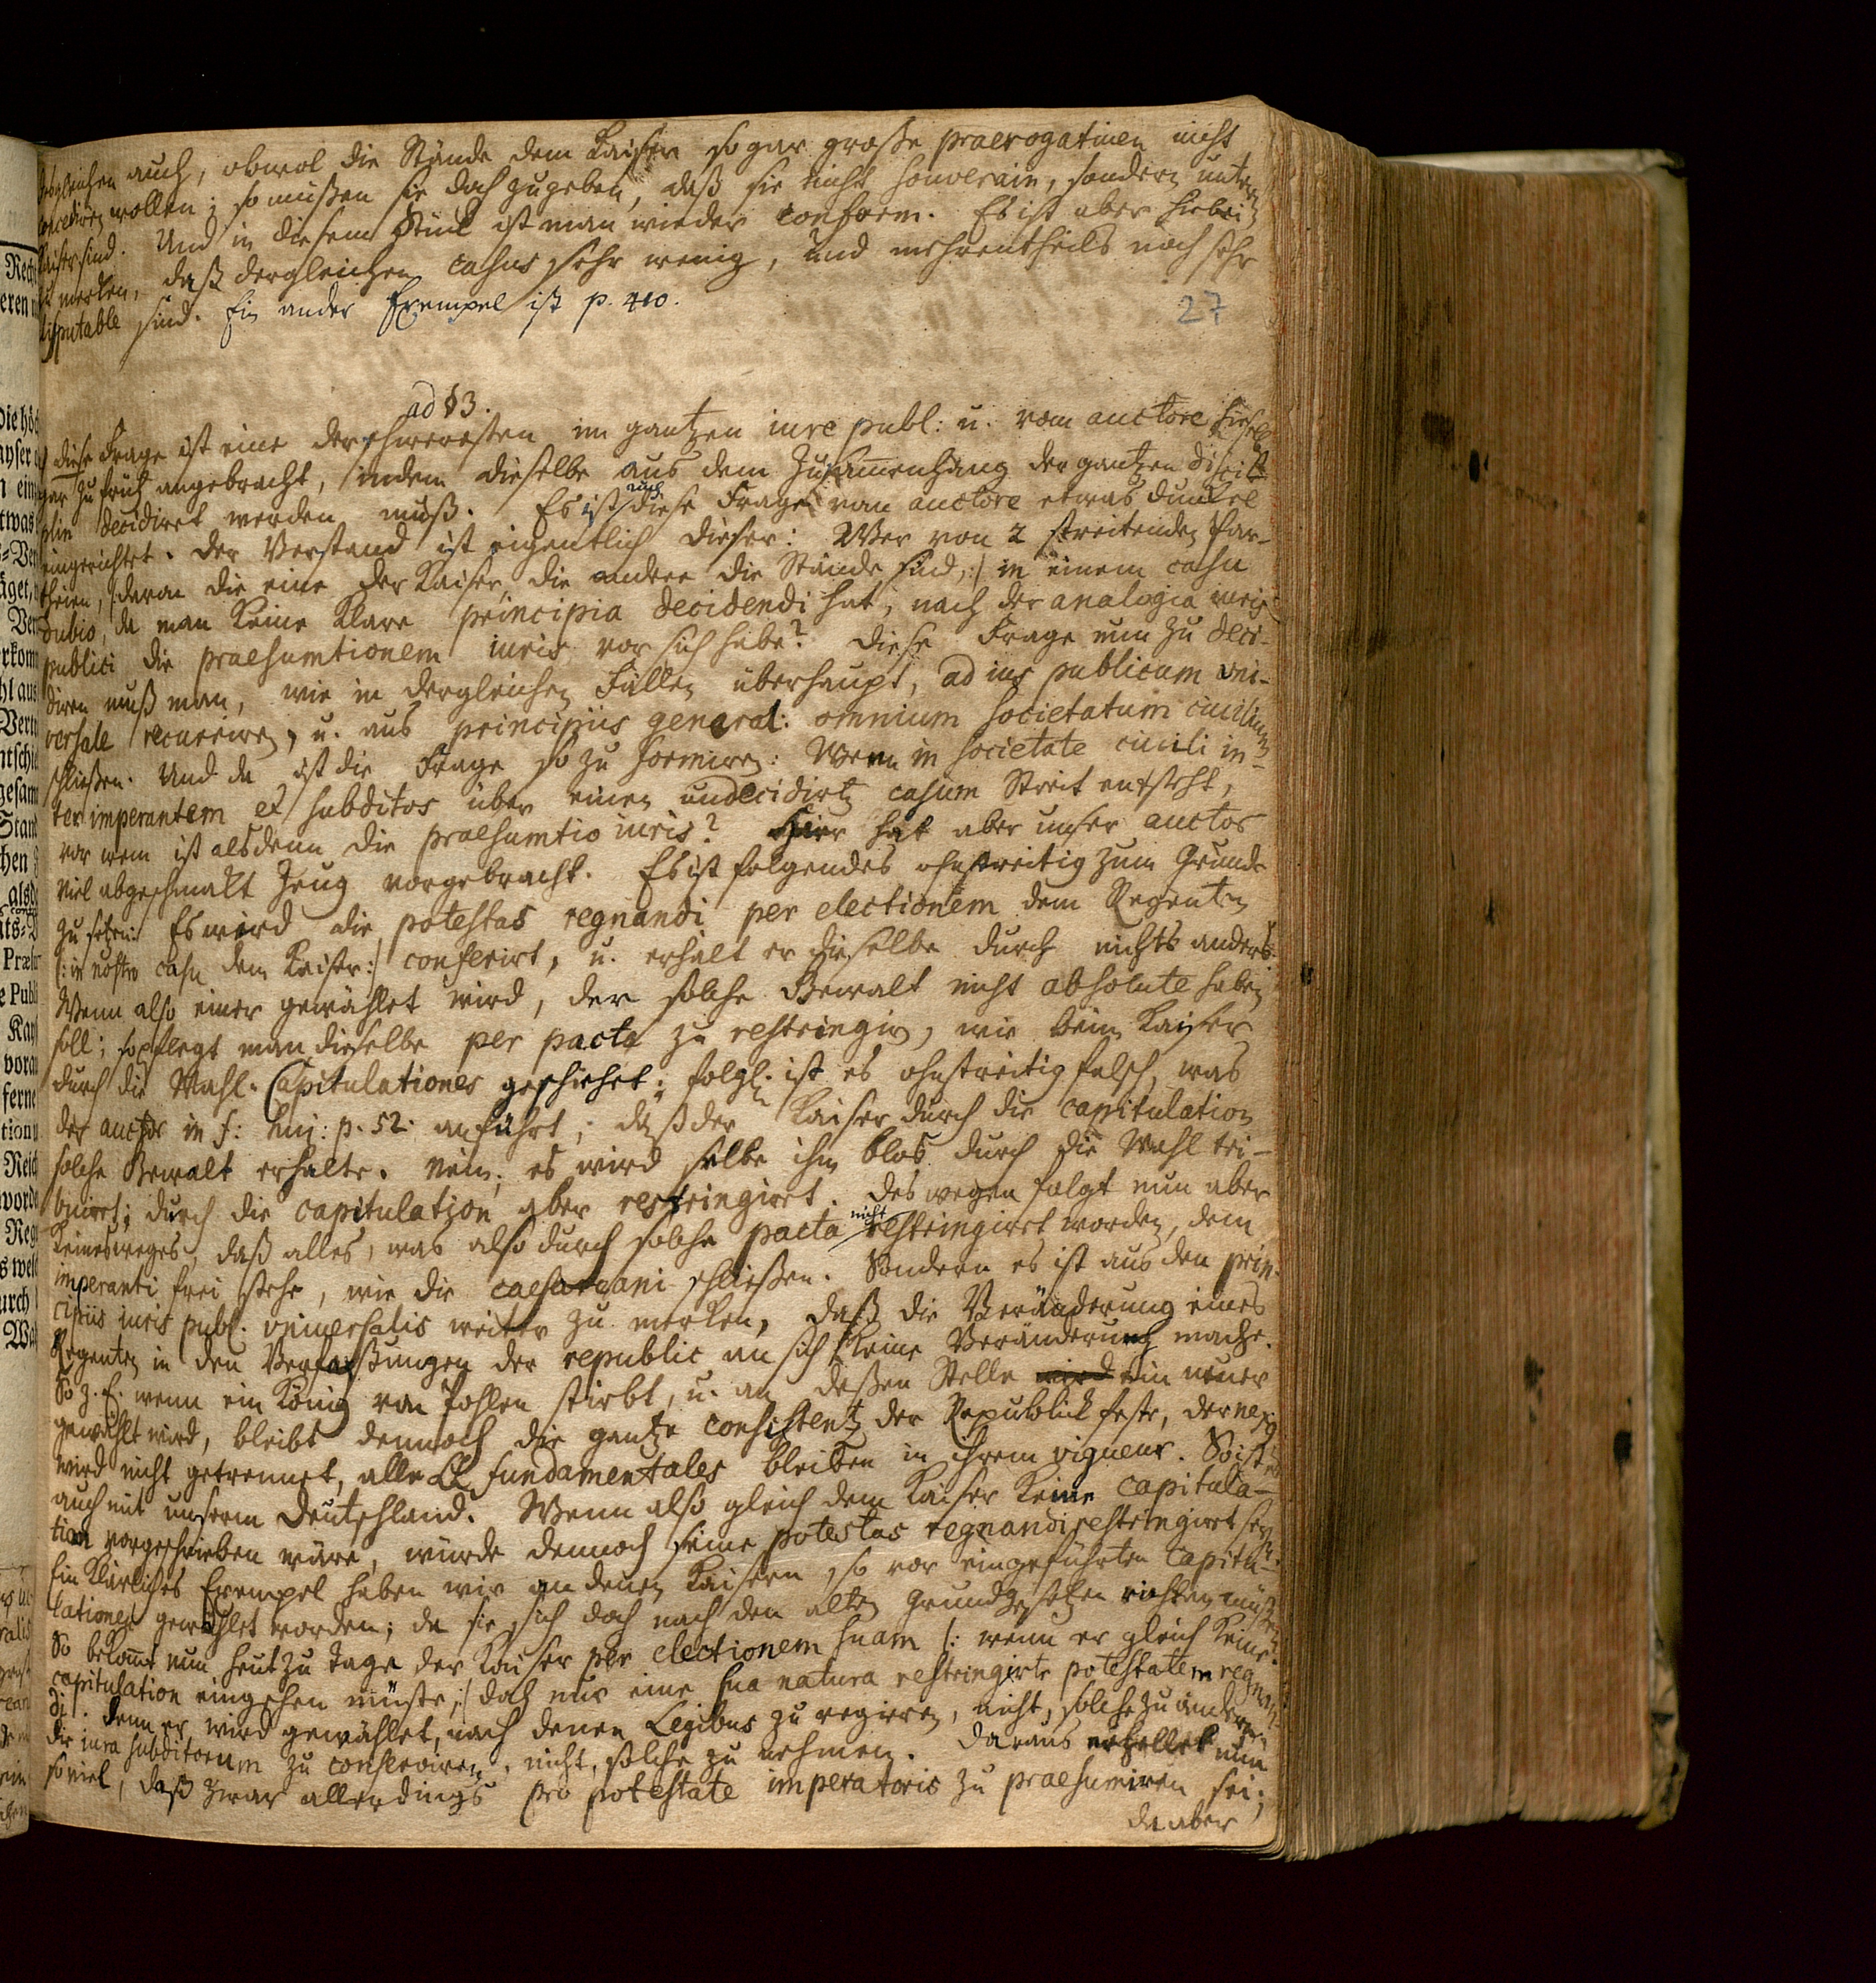 dergleichen auch, obwol die Stände dem Kaiser so gar große praerogatiuen nicht
concediren wollen; so müßen sie doch zugeben, daß sie nicht souverain, sondern unterm
Kaiser sind. Und in diesem Stück ist man wieder conform. Es ist aber hiebei
zu merken, daß dergleichen casus sehr wenig, und mehrentheils noch sehr
disputable sind. Ein ander Exempel ist p. 410.
27
ad §3.
diese Frage ist eine der schweresten im gantzen iure publ: u. vom auctore hieselbst
gar zu früh angebracht, indem dieselbe aus dem Zusammenhang der gantzen disci-
plin decidiret werden muß. Es ist auch diese Frage vom auctore etwas dunkel
eingerichtet. Der Verstand ist eigentlich dieser: Wer von 2 streitenden Par-
theien, |:deren die eine der Kaiser, die andere die Stände sind,:| in einem casu
dubio, da man keine klare principia decidendi hat, nach der analogia iuris
publici die praesumtionem iuris vor sich habe? diese Frage nun zu deci-
diren muß man, wie in dergleichen Fällen überhaupt, ad ius publicum vni-
versale recurriren, u. aus principiis general: omnium societatum ciuilium
schließen. Und da ist die Frage so zu formiren: Wenn in societate ciuili in-
ter imperantem et subditos über einen undecidirten casum Streit entsteht,
vor wem ist alsdenn die praesumtio iuris? Hier hat aber unser auctor
viel abgeschmakt Zeug vorgebracht. Es ist folgendes ohnstreitig zum Grunde
zu setzen: Es wird die potestas regnandi per electionem dem Regenten
|: in nostro casu dem Kaiser:| conferirt, u. erhält er dieselbe durch nichts anders.
Wenn also einer gewählet wird, der solche Gewalt nicht absolute haben
soll; so pflegt man dieselbe per pacta zu restringiren, wie beim Kaiser
durch die Wahl-Capitulationes geschiehet; folgl. ist es ohnstreitig falsch, was
der auctor in f: huj: p. 52. anführt, daß der Kaiser durch die capitulation
solche Gewalt erhalte. Nein, es wird selbe ihm blos durch die Wahl tri-
buiret; durch die capitulation aber restringiret. Deswegen folgt nun aber
keinesweges, daß alles, was also durch solche pacta nicht restringiret worden, dem
imperanti frei stehe, wie die caesareani schließen. Sondern es ist aus den prin-
cipiis iuris publ. vniuersalis weiter zu merken, daß die Veränderung eines
Regenten in den Verfaßungen der republic an sich keine Veränderung mache.
So z. E. wenn ein König von Pohlen stirbt, u. an deßen Stelle wird ein neuer
gewählt wird, bleibt dennoch die gantze consistentz der Republick feste, der nexus
wird nicht getrennet, alle LL. fundamentales bleiben in ihrem vigueur. So ist es
auch mit unserm Deutschland. Wenn also gleich dem Kaiser keine capitula-
tion vorgeschrieben wäre, würde dennoch seine potestas regnandi restringiret seyn.
Ein klärliches Exempel haben wir an denen Kaisern, so vor eingeführten Capitu-
lationen gewählet worden; da sie sich doch nach den alten Grundgesetzen richten müßen.
So bekommt nun heut zu Tage der Kaiser per electionem suam |: wenn er gleich keine
capitulation eingehen müste,:| doch nur eine sua natura restringirte potestatem regnan-
di. Denn er wird gewählet, nach denen Legibus zu regieren, nicht, solche zu ändern;
die iura subditorum zu conserviren, nicht, solche zu nehmen. Daraus erhellet nun
so viel, daß zwar allerdings pro potestate imperatoris zu praesumiren sei;
da aber